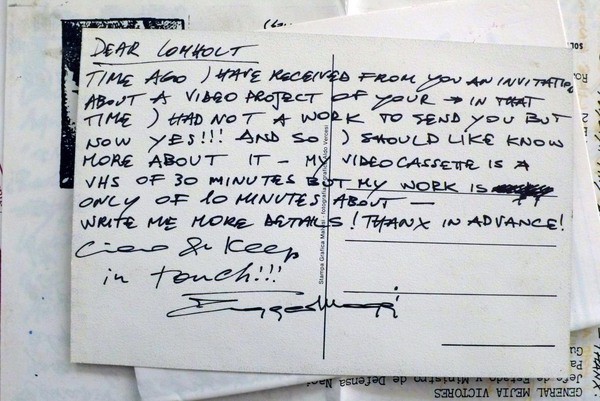 DEAR LOMHOLT
TIME AGO I HAVE RECEIVED FROM YOU AN INVITATION
ABOUT A VIDEO PROJECT OF YOUR → IN THAT
TIME I HAD NOT A WORK TO SEND YOU BUT
NOW YES!!! AND SO I SHOULD LIKE KNOW
MORE ABOUT IT - MY VIDEOCASSETTE IS A
VHS OF 30 MINUTES BUT MY WORK IS
ONLY OF 10 MINUTES ABOUT —
WRITE ME MORE DETAILS! THANX IN ADVANCE!
Ciao & Keep
in touch!!!
Stampa Grafica
fotografia
Vercesi
THANX.
GENERAL MEJIA VICTORES
Jefe de Estado y Ministro de Defensa Naci
Pa
Gu